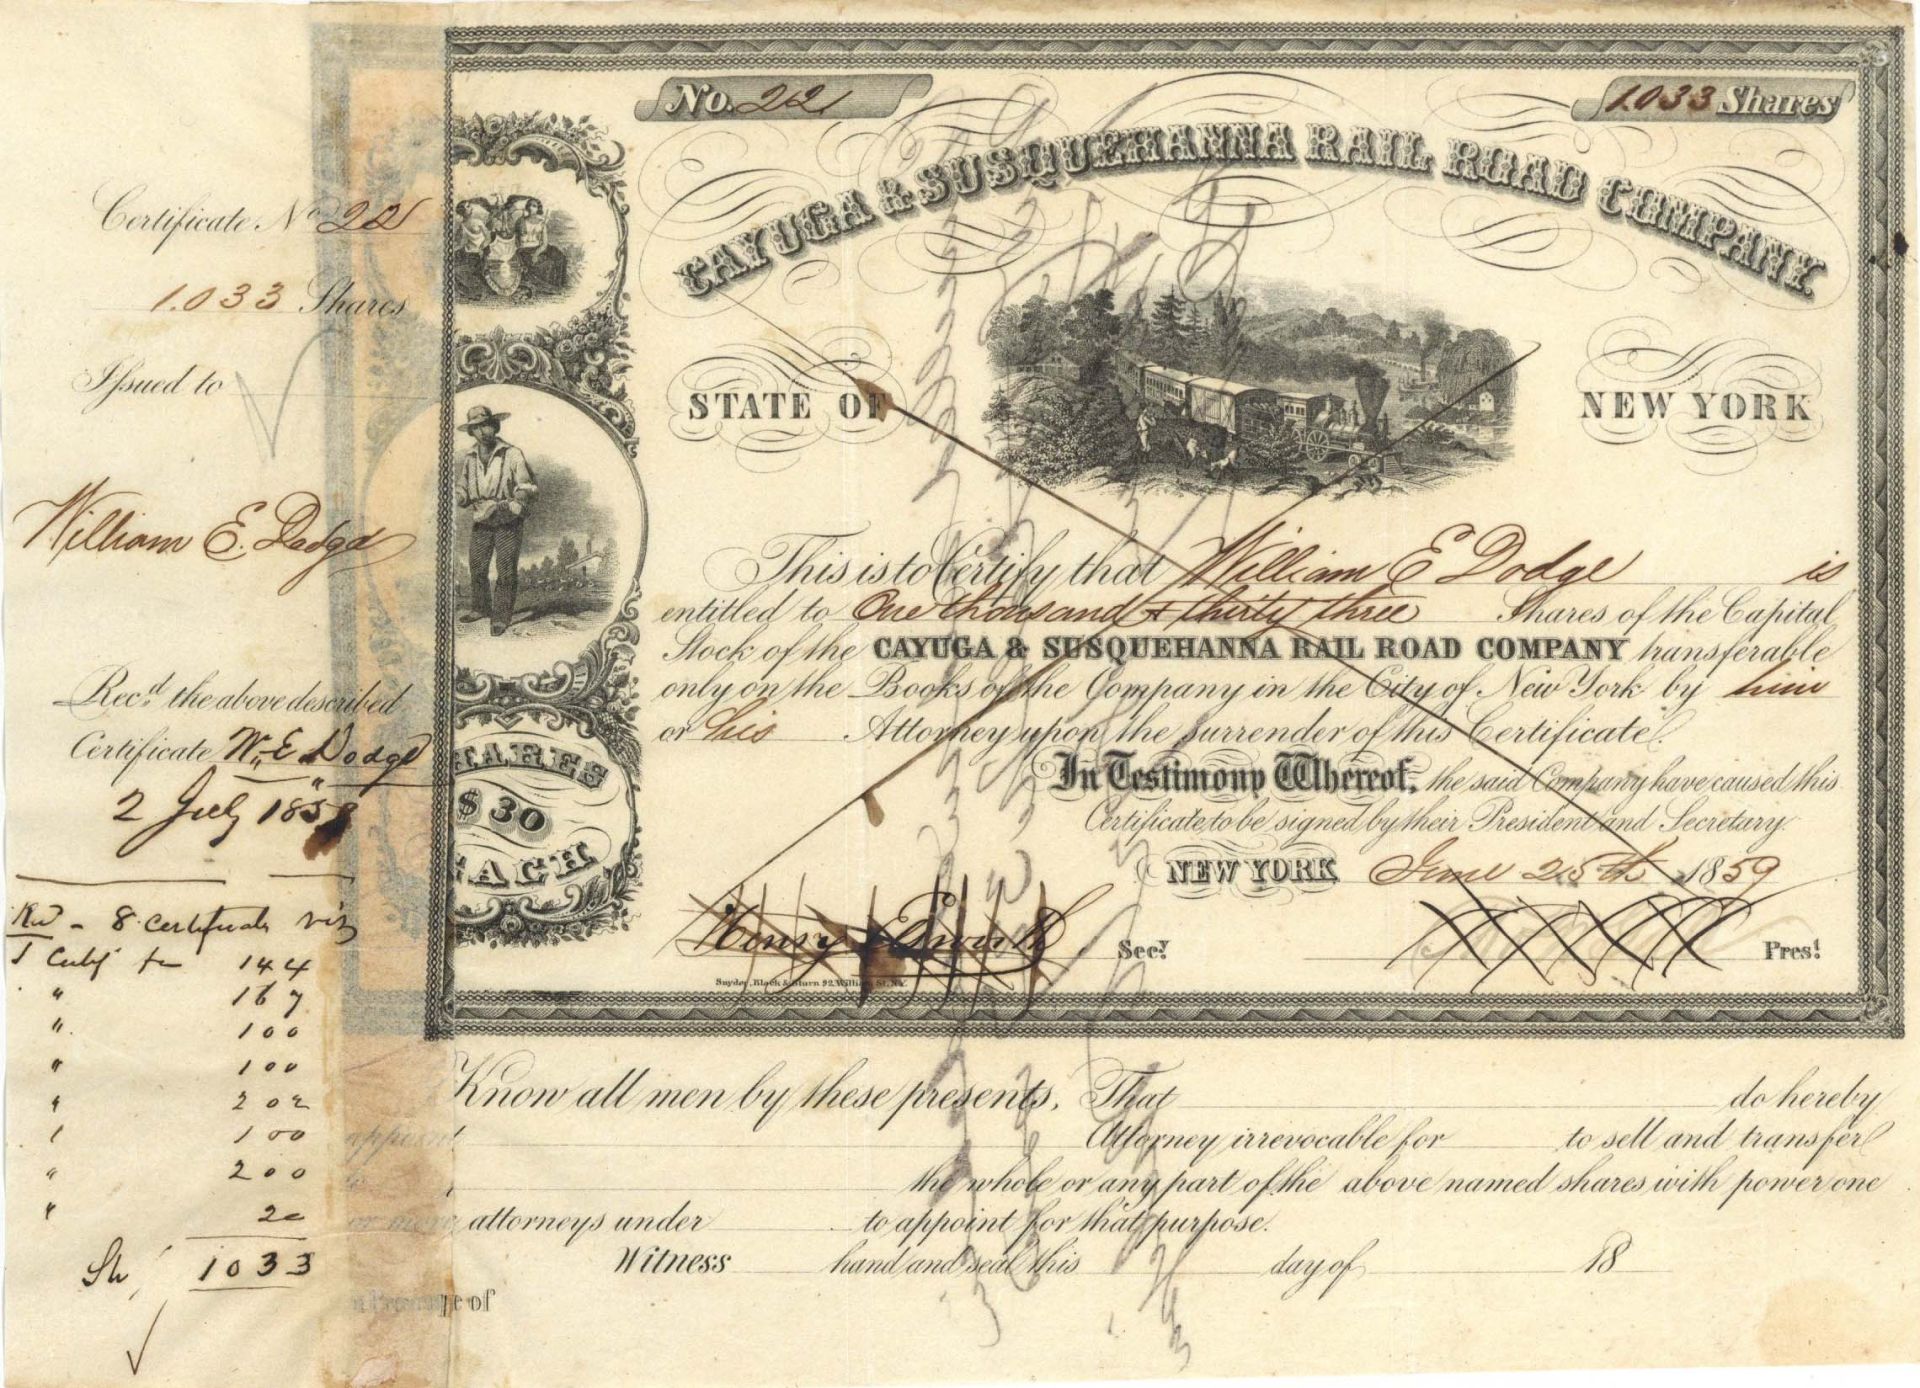 Certificate No 221
1.033 Shares
Issued to
William E. Dodge
Recd. the above described
Certificate W. E. Dodge
2 July 1859
8 certificates viz
144
" 167
" 100
" 100
" 202
100
" 200
" 20
Sh 1033
No. 221
1.033 Shares
CAYUGA & SUSQUEHANNA RAIL ROAD COMPANY.
STATE OF NEW YORK
This is to Certify that William E Dodge is
entitled to One thousand & thirty three Shares of the Capital
Stock of the CAYUGA & SUSQUEHANNA RAIL ROAD COMPANY transferable
only on the Books of the Company in the City of New York by him
or his Attorney upon the surrender of this Certificate.
In Testimony Whereof, the said Company have caused this
Certificate to be signed by their President and Secretary.
NEW YORK June 25th 1859
Henry Secy. Prest.
Snyder, Black & Sturn 92 William St. N.Y.
HARES
$ 30
EACH
Know all men by these presents, That do hereby
appoint Attorney irrevocable for to sell and transfer
the whole or any part of the above named shares with power one
or more attorneys under to appoint for that purpose.
Witness hand and seal this day of 18
of